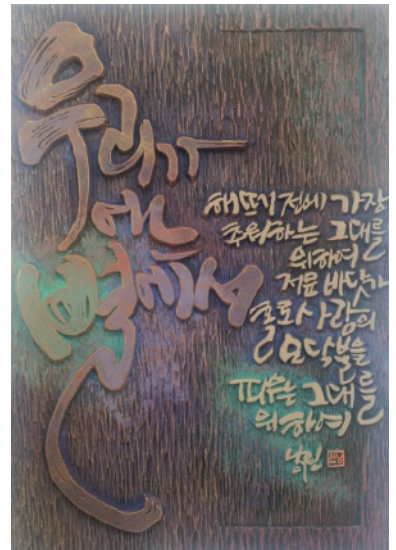 우리가
어느
별에서
해뜨기 전에 가장
추워하는 그대를
위하여
저문 바닷가
홀로 사랑의
모닥불을
피우는 그대를
위하여